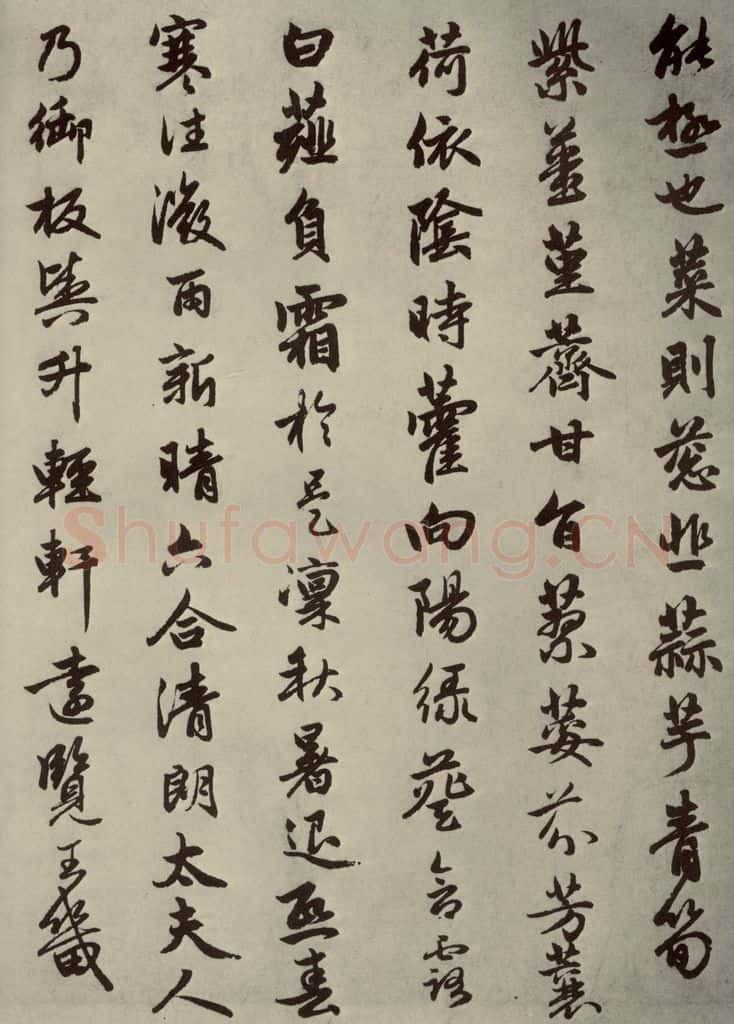 能極也菜則葱韭蒜芋青筍
紫薑堇薺甘旨蓼荾芬芳蘘
荷依陰時藿向陽緑葵含露
白薤負霜於是凜秋暑退熙春
寒往微雨新晴六合清朗太夫人
乃御板輿升輕軒遠覽王畿
Shufawang.CN